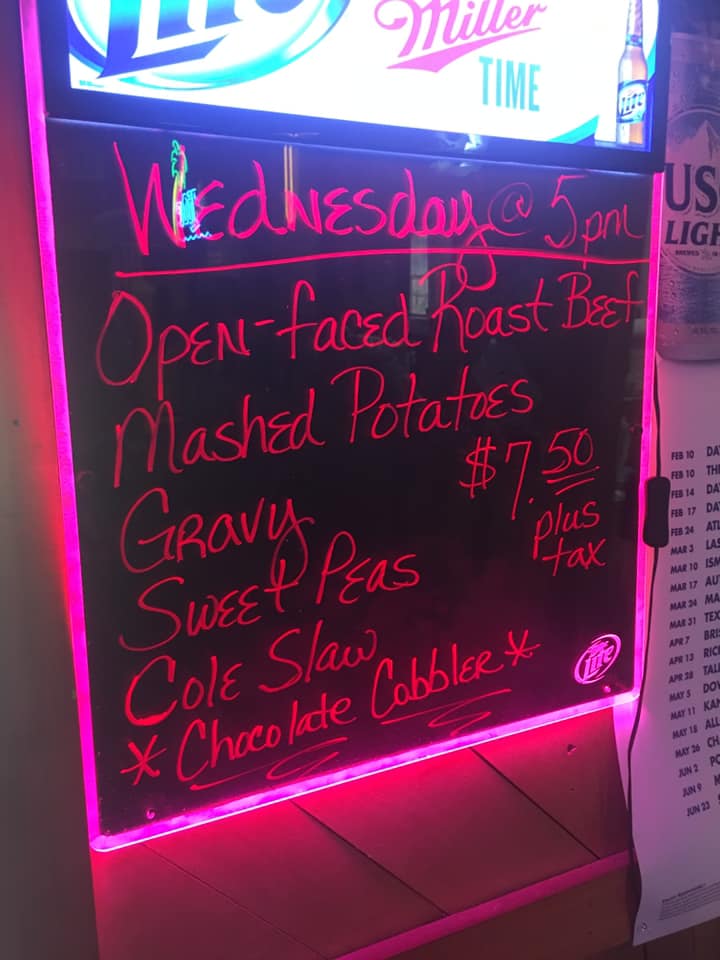 Lite
Miller
TIME
Lite
Wednesday @ 5pm
Open-faced Roast Beef
Mashed Potatoes
$7.50
plus
tax
Gravy
Sweet Peas
Cole Slaw
*Chocolate Cobbler*
Lite
US
LIGH
FEB 10 DA
FEB 10 TH
FEB 14 DA
FEB 17 DA
FEB 24 ATL
MAR 3 LAS
MAR 10 ISM
MAR 17 AU
MAR 24 MA
MAR 31 TEX
APR 7 BRIS
APR 13 RIC
APR 28 TAL
MAY 5 DOV
MAY 11 KAN
MAY 18 ALL
MAY 26 CH
JUN 2 PO
JUN 9
JUN 23